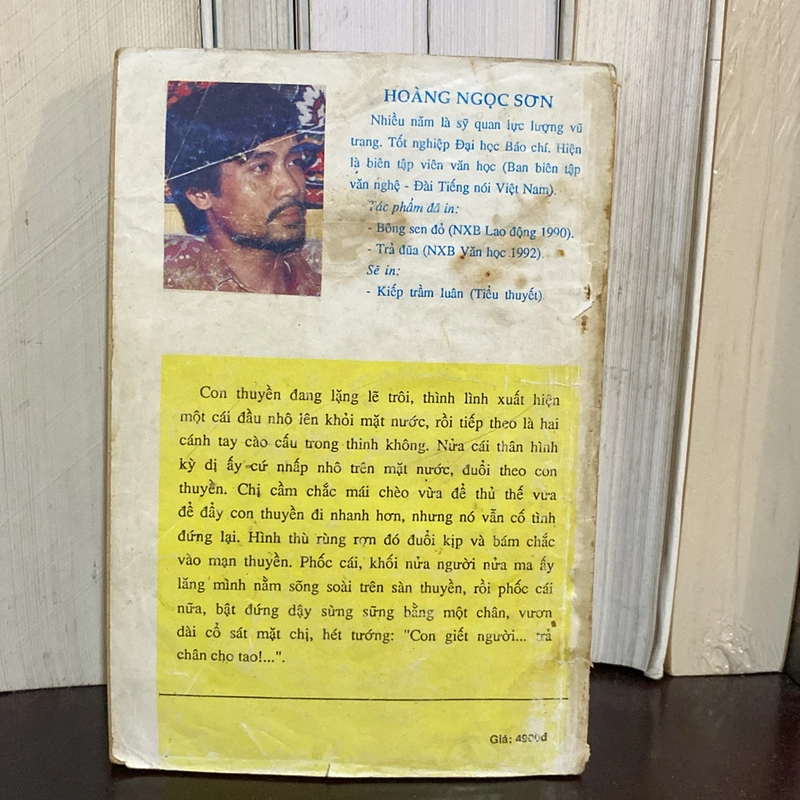 HOÀNG NGỌC SƠN
Nhiều năm là sỹ quan lực lượng vũ
trang. Tốt nghiệp Đại học Báo chí. Hiện
là biên tập viên văn học (Ban biên tập
văn nghệ - Đài Tiếng nói Việt Nam).
Tác phẩm đã in:
- Bông sen đỏ (NXB Lao động 1990).
- Trả đũa (NXB Văn học 1992).
Sẽ in:
- Kiếp trầm luân (Tiểu thuyết)
Con thuyền đang lặng lẽ trôi, thình lình xuất hiện
một cái đầu nhô lên khỏi mặt nước, rồi tiếp theo là hai
cánh tay cào cấu trong thinh không. Nửa cái thân hình
kỳ dị ấy cứ nhấp nhô trên mặt nước, đuổi theo con
thuyền. Chị cầm chắc mái chèo vừa để thủ thế vừa
để đẩy con thuyền đi nhanh hơn, nhưng nó vẫn cố tình
đứng lại. Hình thù rùng rợn đó đuổi kịp và bám chắc
vào mạn thuyền. Phốc cái, khối nửa người nửa ma ấy
lăng mình nằm sõng soài trên sàn thuyền, rồi phốc cái
nữa, bật đứng dậy sừng sững bằng một chân, vươn
dài cổ sát mặt chị, hét tướng: "Con giết người... trả
chân cho tao!...".
Giá: 4900đ